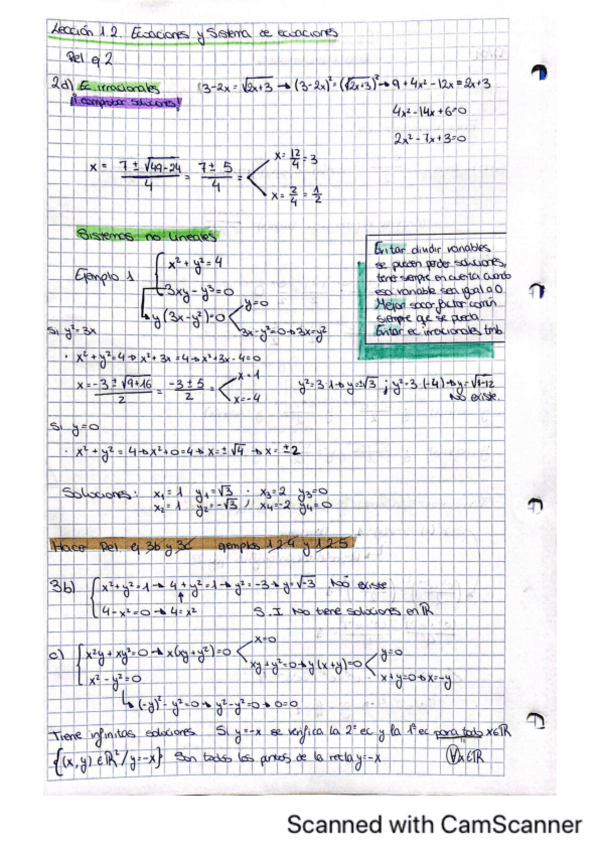 Lección 1.2. Ecuaciones y Sistema de ecuaciones
Rel ej 2
2d) Ec irracionales 3-2x = √2x+3 → (3-2x)² = (√2x+3)² → 9+4x²-12x = 2x+3
¡¡comprobar soluciones!
4x²-14x+6=0
2x²-7x+3=0
x = 7±√49-24 / 4 = 7±5 / 4 = x = 12/4 = 3
x = 2/4 = 1/2
Sistemas no lineales
Ejemplo 1 { x²+y²=4
3xy-y³=0
y(3x-y²)=0 y=0
3x-y²=0→3x=y²
Evitar dividir variables
se pueden perder soluciones,
tene siempre en cuenta cuando
esa variable sea igual a 0.
Mejor sacar factor común
siempre que se pueda.
Evitar ec irracionales tmb.
Si y²=3x
· x²+y²=4→x²+3x=4→x²+3x-4=0
x = -3±√9+16 / 2 = -3±5 / 2 = x=1
x=-4
y²=3·1→y=±√3 ; y²=3·(-4)→y=√-12
No existe.
Si y=0
· x²+y²=4→x²+0=4→x=±√4→x=±2
Soluciones: x₁=1 y₁=√3 ; x₃=2 y₃=0
x₂=1 y₂=-√3 ; x₄=-2 y₄=0
Hacer Rel. ej 3b y 3c ejemplos 1.2.4 y 1.2.5
3b) { x²+y²=1→4+y²=1→y²=-3→y=√-3 No existe
4-x²=0→4=x² S.I No tiene soluciones en ℝ
c) { x²y+xy²=0→x(xy+y²)=0 x=0
xy+y²=0→y(x+y)=0 y=0
x+y=0→x=-y
x²-y²=0
(-y)²-y²=0→y²-y²=0→0=0
Tiene infinitas soluciones Si y=-x se verifica la 2ª ec y la 1ª ec para todo x∈ℝ
{(x,y)∈ℝ²/y=-x} Son todos los puntos de la recta y=-x ∀x∈ℝ
Scanned with CamScanner